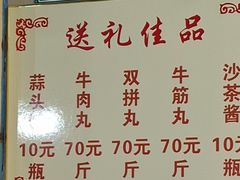 送礼佳品
蒜头 10元 瓶
牛肉丸 70元 斤
双拼丸 70元 斤
牛筋丸 70元 斤
沙茶酱 10元 瓶